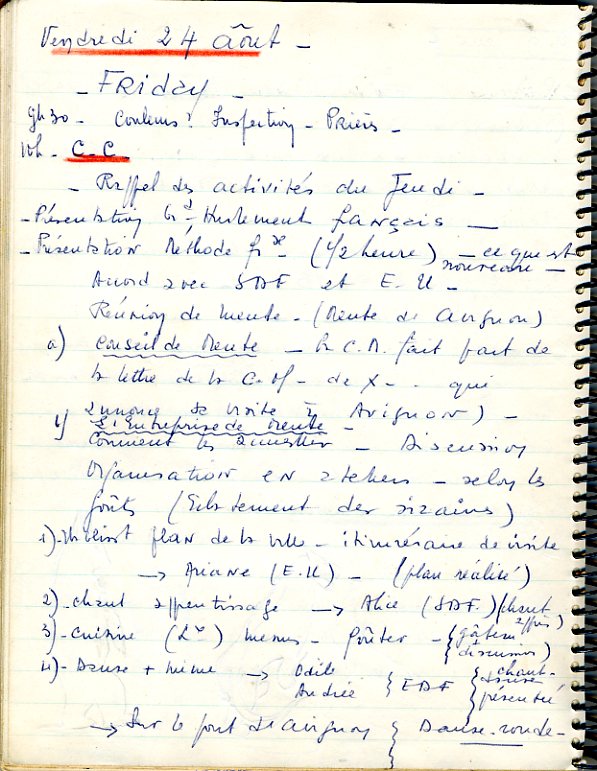 Vendredi 24 Août -
- FRiday -
9h30 - Couleurs? Inspection - Prières -
10h - C-C
- Rappel des activités du Jeudi -
- Présentation hurlement français -
- Présentation Méthode (1/2 heure) - ce que est
nouveau -
Accord avec SDF et E.U -
Réunion de meute - (Meute de Avignon)
a) Conseil de Meute - la C.M. fait part de
la lettre de la C.M - de X - . . qui
annonce sa visite à Avignon) -
b) L'Entreprise de Meute -
Comment les accueillir - Discussion
Organisation en ateliers - selon les
goûts (Eclatement des sizaines)
1) - plan de la ville - itinéraire de visite
→ Ariane (E.U) - (plan réalisé)
2) - chant apprentissage → Alice (SDF.) (chant
appris)
3) - Cuisine menus - goûter - { gâteau
discussion }
4) - Danse + mime → Odile
Andrée { EDF { chant -
danse
présenté
→ Sur le pont de Avignon { Danse-ronde -